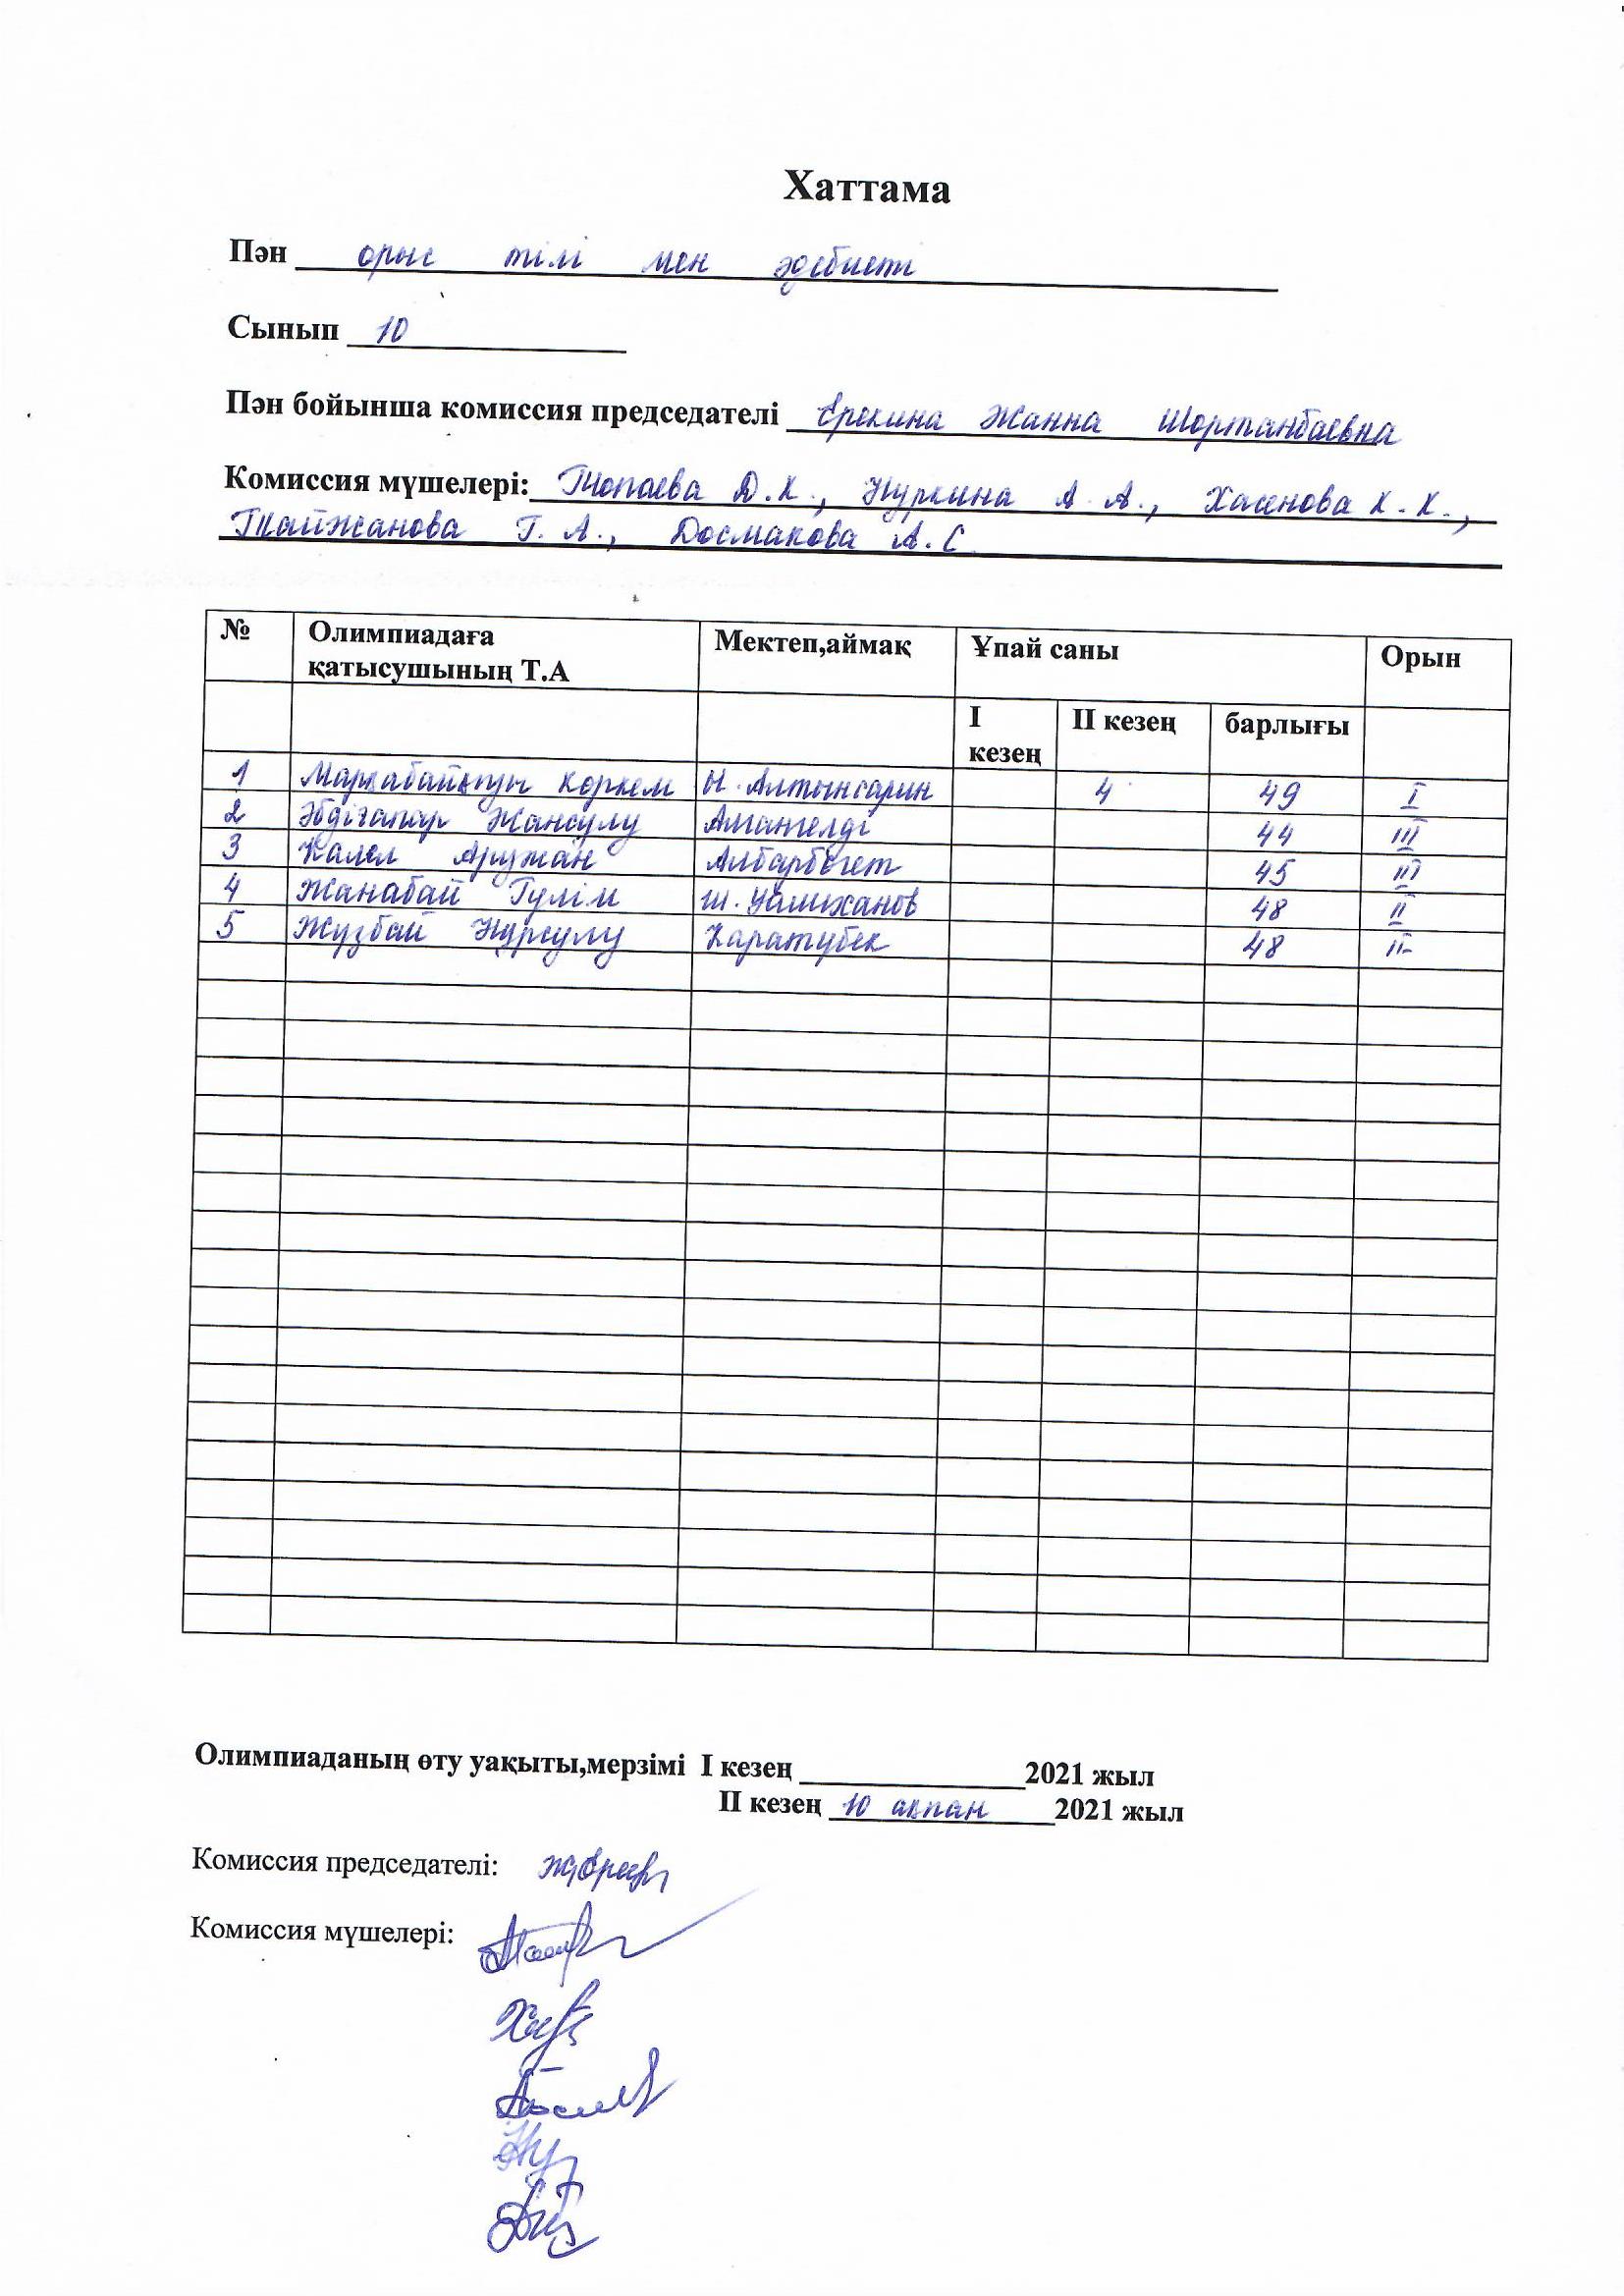 Хаттама
Пән орыс тілі мен әдебиеті
Сынып 10
Пән бойынша комиссия председателі Ерекина Жанна Шортанбаевна
Комиссия мүшелері: Топаева Д.К., Нуркина А.А., Хасенова К.К.,
Тайжанова Г.А., Досмакова А.С.
№ Олимпиадаға қатысушының Т.А Мектеп,аймақ Ұпай саны Орын
I кезең II кезең барлығы
1 көркем Ы.Алтынсарин 4 49 I
2 Әбдіғапар Жансұлу Амангелді 44 III
3 Калел Аружан 45 III
4 Жанабай Гүлім Ш.Уәлиханов 48 II
5 Жүзбай Нұрсұлу Қаратүбек 48 II
Олимпиаданың өту уақыты,мерзімі I кезең 2021 жыл
II кезең 10 ақпан 2021 жыл
Комиссия председателі:
Комиссия мүшелері: